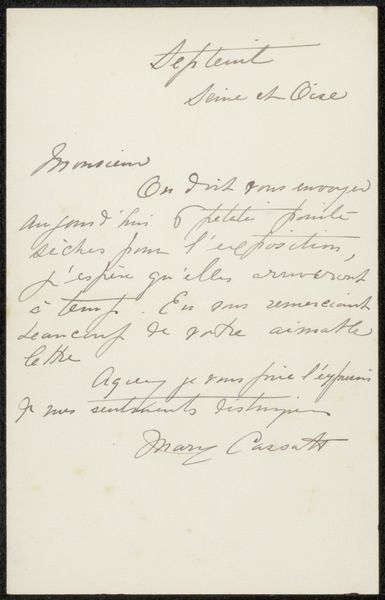 Septeuil
Seine et Oise
Monsieur
On doit vous envoyer
aujourd'hui 6 petite pointe
sèches pour l'exposition,
j'espère qu'elles arriveront
à temps. En vous remerciant
beaucoup de votre aimable
lettre
Agréez je vous prie l'expression
de mes sentiments distingués
Mary Cassatt